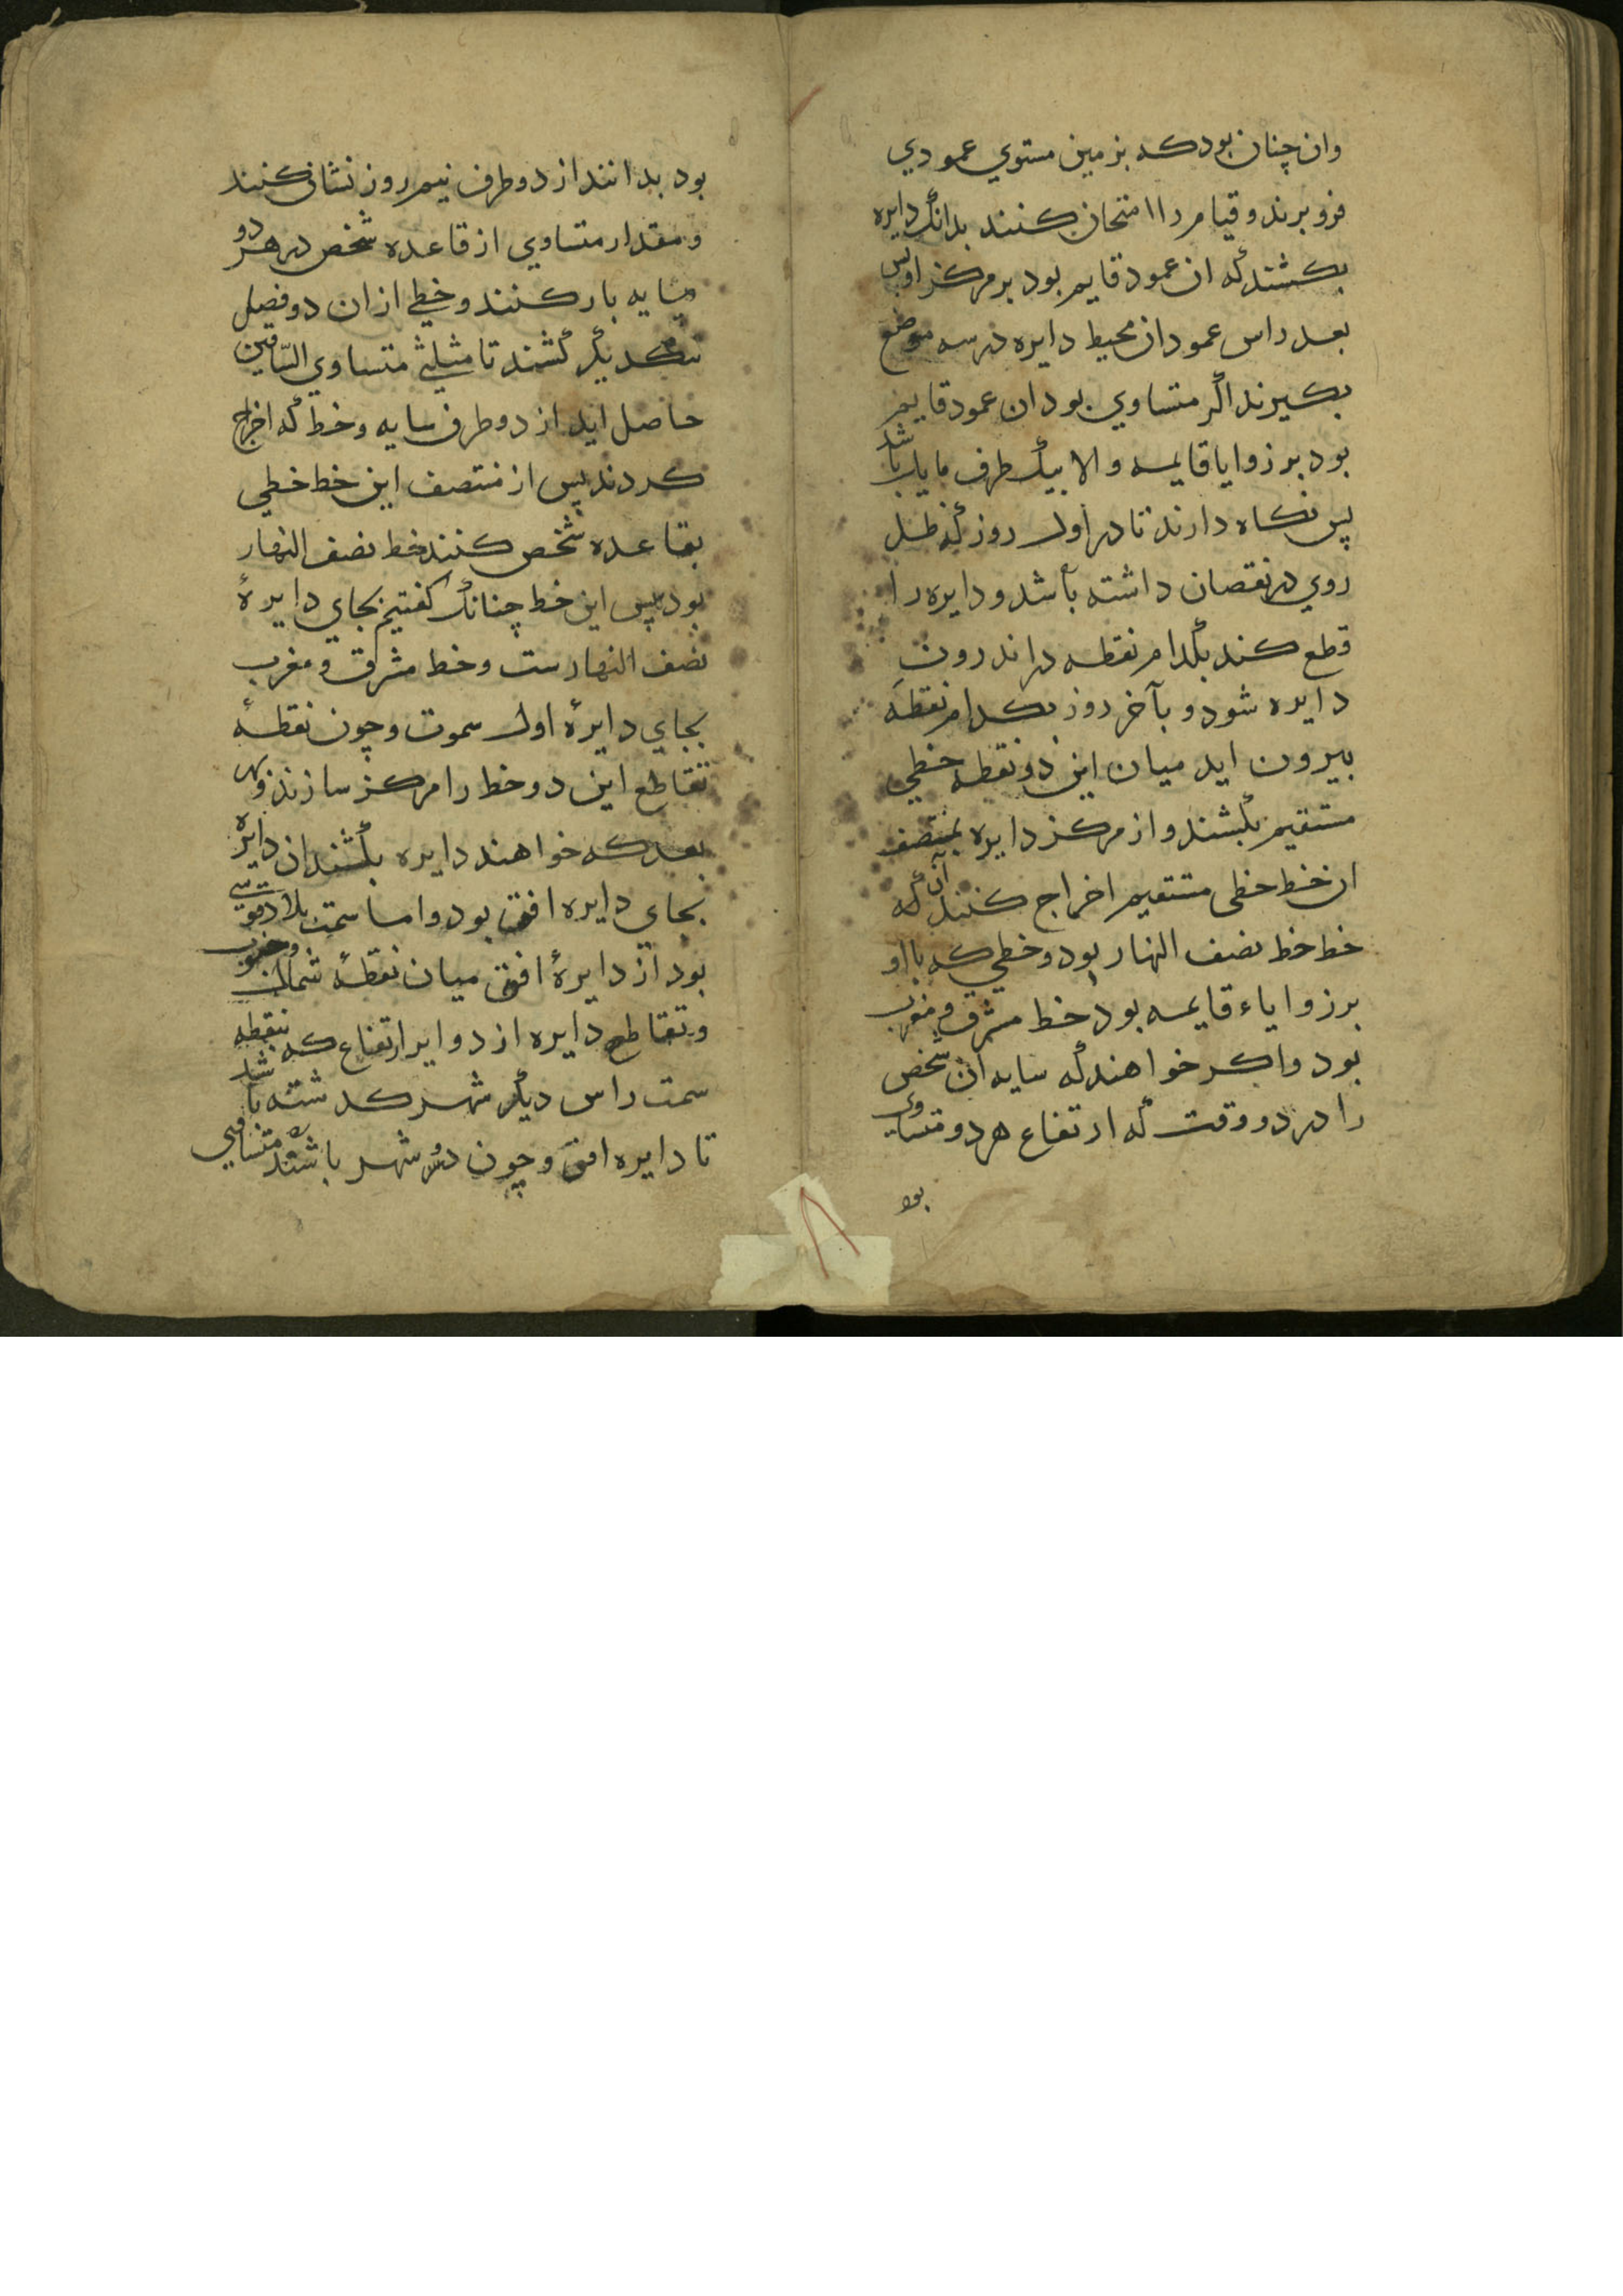 وان چنان بود که بزمین مستوي عمودي
فرو برند و قیام را امتحان کنند بدانک دایره
بکشند که ان عمود قایم بود بر مرکز او پس
بعد راس عمود از محیط دایره در سه موضع
بکیرند اکر متساوي بود ان عمود قایم
بود بر زوایا قایمه والا بیک طرف مایل باشد
پس نکاه دارند تا در اول روز که ظل
روي در نقصان داشته باشد و دایره را
قطع کند بکدام نقطه در اندرون
دایره شود و بآخر روز بکدام نقطه
بیرون اید میان این دو نقطه خطي
مستقیم بکشند و از مرکز دایره بمنتصف
ان خط خطی مستقیم اخراج کنند آن که
خط خط نصف النهار بود و خطي که با او
بر زوایاء قایمه بود خط مشرق و مغرب
بود واکر خواهند که سایه ان شخص
را در دو وقت که ارتفاع هر دو متساوی
بود
بود بدانند از دو طرف نیم روز نشان کنند
و مقدار متساوي از قاعده شخص در هر دو
سایه بار کنند و خطي از ان دو فصل
بیکدیکر کشند تا مثلثي متساوي السّاقین
حاصل اید از دو طرف سایه و خط که اخراج
کردند پس از منتصف این خط خطي
بقاعده شخص کنند خط نصف النهار
بود پس این خط چنانک کفتیم بجاي دایرۀ
نصف النهارست و خط مشرق و مغرب
بجاي دایرۀ اول سموت و چون نقطۀ
تقاطع این دو خط را مرکز سازند و بهر
بعد که خواهند دایره بکشند ان دایره
بجای دایره افق بود و اما سمت بلاد قوسی
بود از دایرۀ افق میان نقطۀ شمال و جنوب
و تقاطع دایره از دوایر ارتفاع که بنقطه
سمت راس دیکر شهر کذشته باشد
تا دایره افق و چون دو شهر باشند متساقي